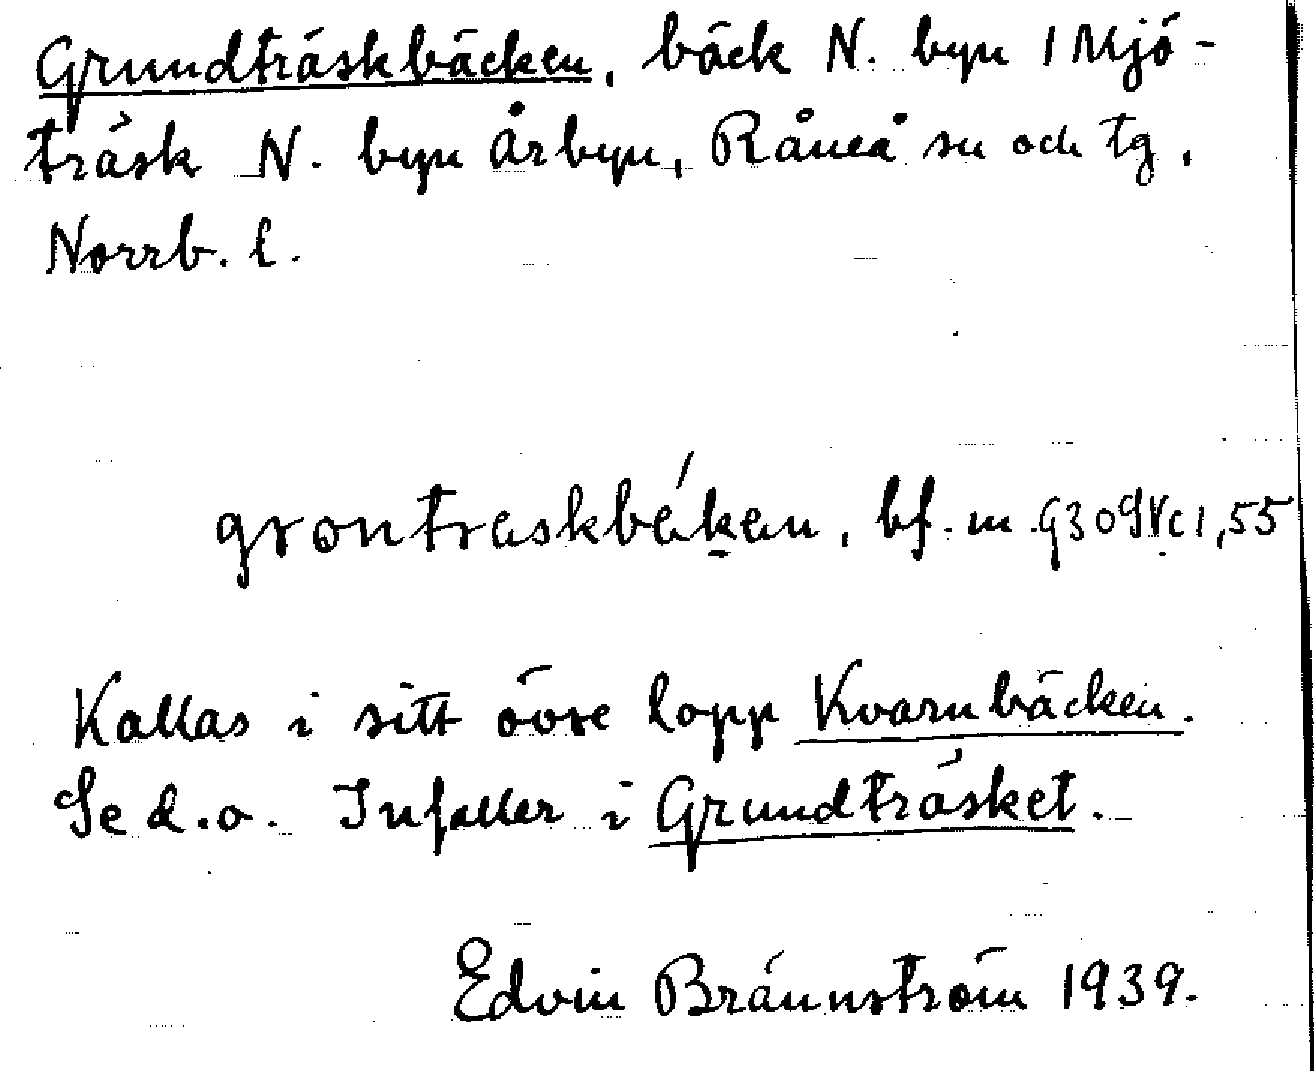 Grundträskbäcken, bäck N. byn 1 Mjö-
träsk N. byn Årbyn, Råneå sn och tg,
Norrb. l.
grontraskbäken, bf. m.
Kallas i sitt övre lopp Kvarnbäcken.
Se d.o. Infaller i Grundträsket.
Edvin Brännström 1939.